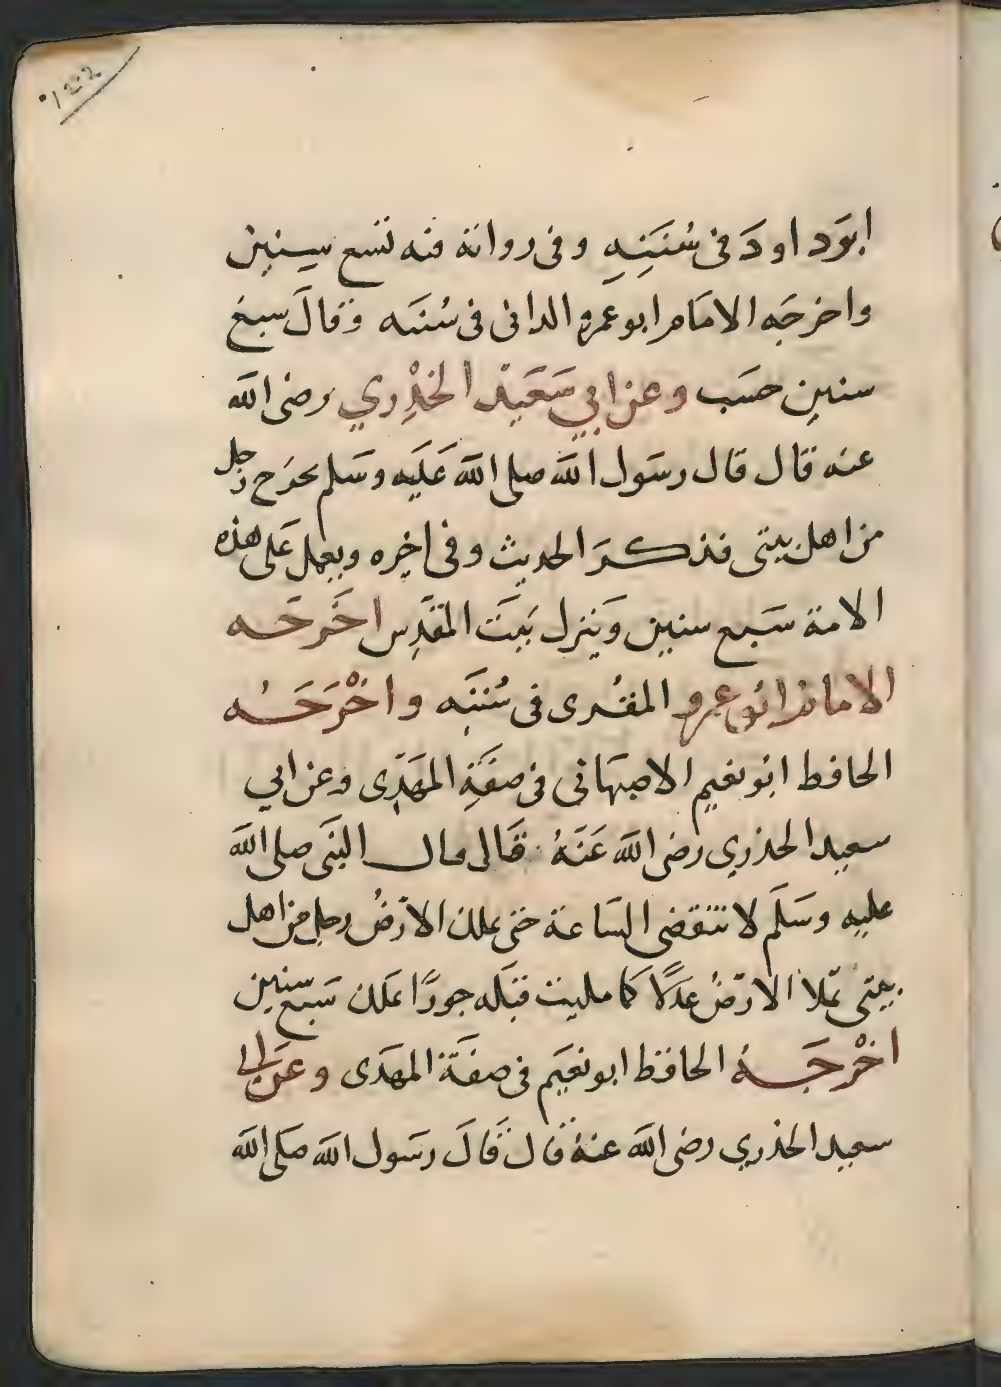 ابو داود فى سُنَنِهِ وفى رواية فيه تسع سنين
واخرجه الامام ابو عمرو الدانى فى سُننه وقال سبع
سنين حسَب وعن ابي سَعَيد الخدْري رضى الله
عنه قال قال رسَول الله صلى الله عَلَيه وسَلم يخرَج رَجل
من اهل بيتى فذكرَ الحديث وفى اخِره ويعمل عَلى هذه
الامة سَبع سنين وَينزل بَيتَ المقَدِس اخَرجَه
الامام ابو عمرو المقرى فى سُننِه واخْرَجَهُ
الحافظ ابو نعيم الاصبهَانى فى صفَةِ المهَدِى وعن ابي
سعيد الخذري رضى الله عَنَهُ قَال قال النبَى صلى الله
عليه وسَلَم لا تنقضى السَاعة حتى يملك الارَضُ رجل من اهل
بيتى يملا الارَضُ عدَلًا كما مليت قبَله جورًا يملَك سَبع سنين
اخْرجَهُ الحافظ ابو نعيَم فى صفَة المهَدى وعَن ابى
سعيد الخذري رضى الله عنهُ قال قَالَ رسَول الله صَلى الله